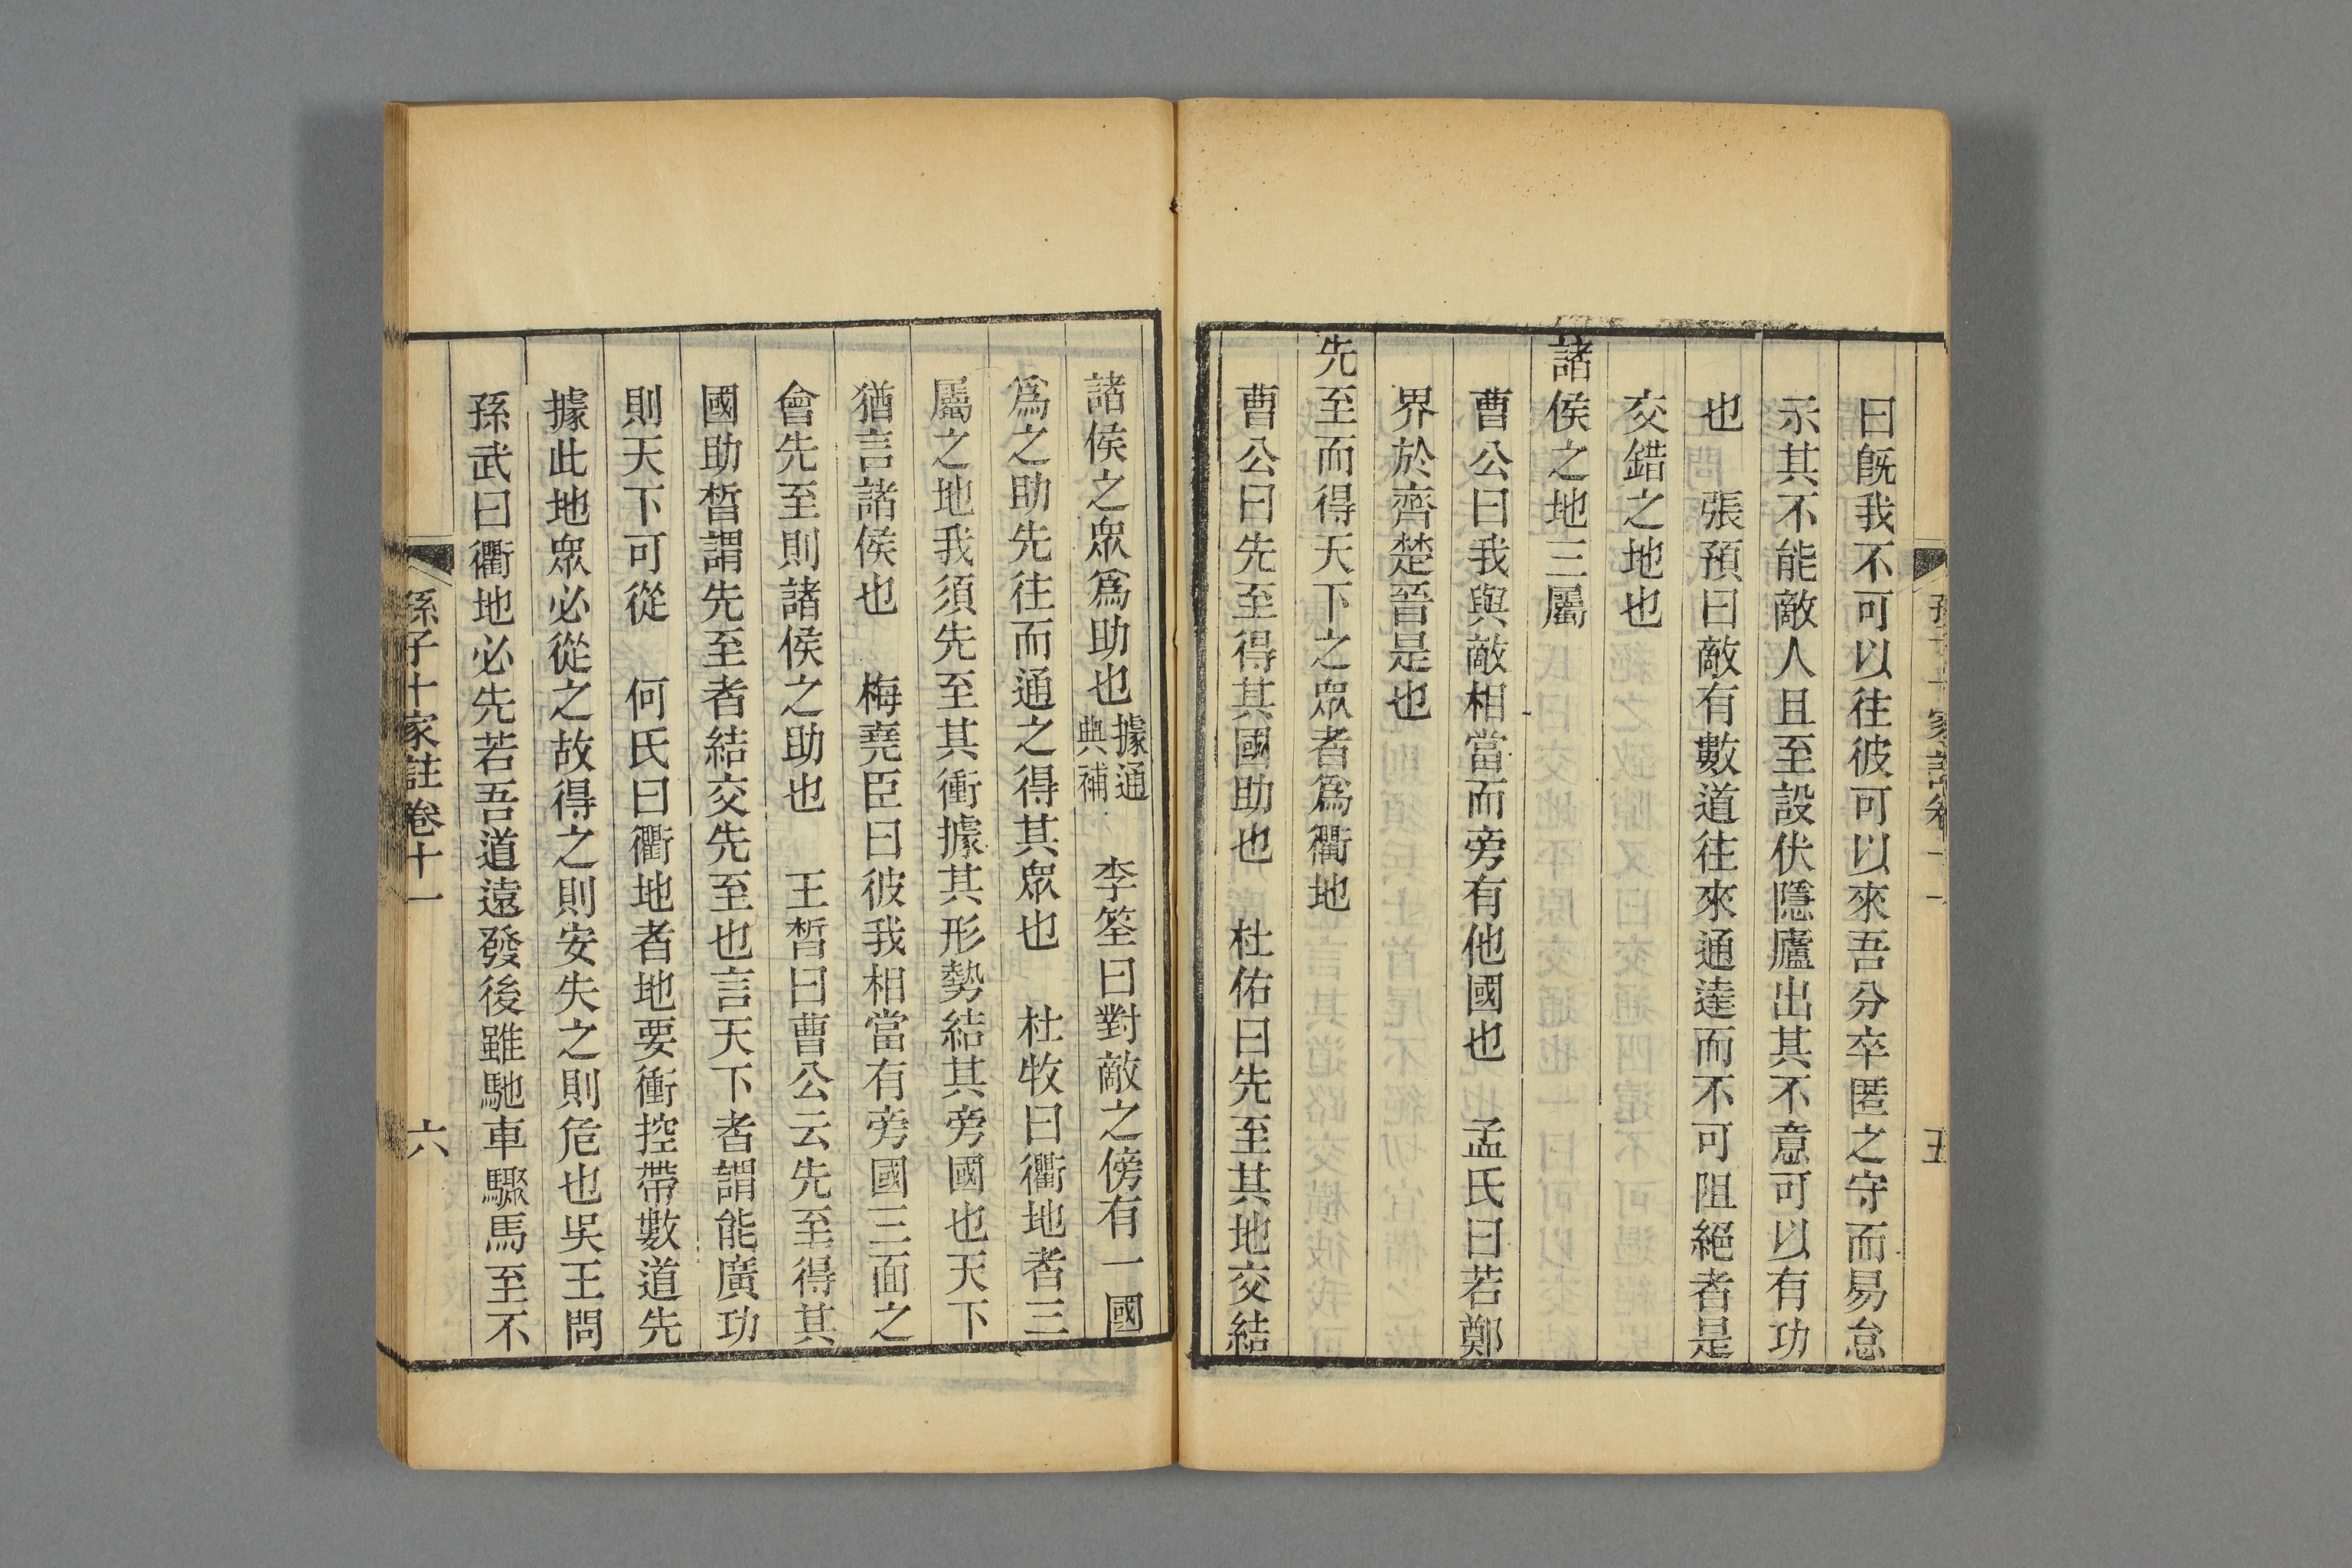 曰旣我不可以往彼可以來吾分卒匿之守而易怠
示其不能敵人且至設伏隱廬出其不意可以有功
也　張預曰敵有數道往來通達而不可阻絕者是
交錯之地也
諸侯之地三屬
曹公曰我與敵相當而旁有他國也　孟氏曰若鄭
界於齊楚晉是也
先至而得天下之眾者爲衢地
曹公曰先至得其國助也　杜佑曰先至其地交結
諸侯之眾爲助也據通典補　李筌曰對敵之傍有一國
爲之助先往而通之得其眾也　杜牧曰衢地者三
屬之地我須先至其衝據其形勢結其旁國也天下
猶言諸侯也　梅堯臣曰彼我相當有旁國三面之
會先至則諸侯之助也　王晳曰曹公云先至得其
國助晳謂先至者結交先至也言天下者謂能廣功
則天下可從　何氏曰衢地者地要衝控帶數道先
據此地眾必從之故得之則安失之則危也吳王問
孫武曰衢地必先若吾道遠發後雖馳車驟馬至不
孫子十家註卷十一
六